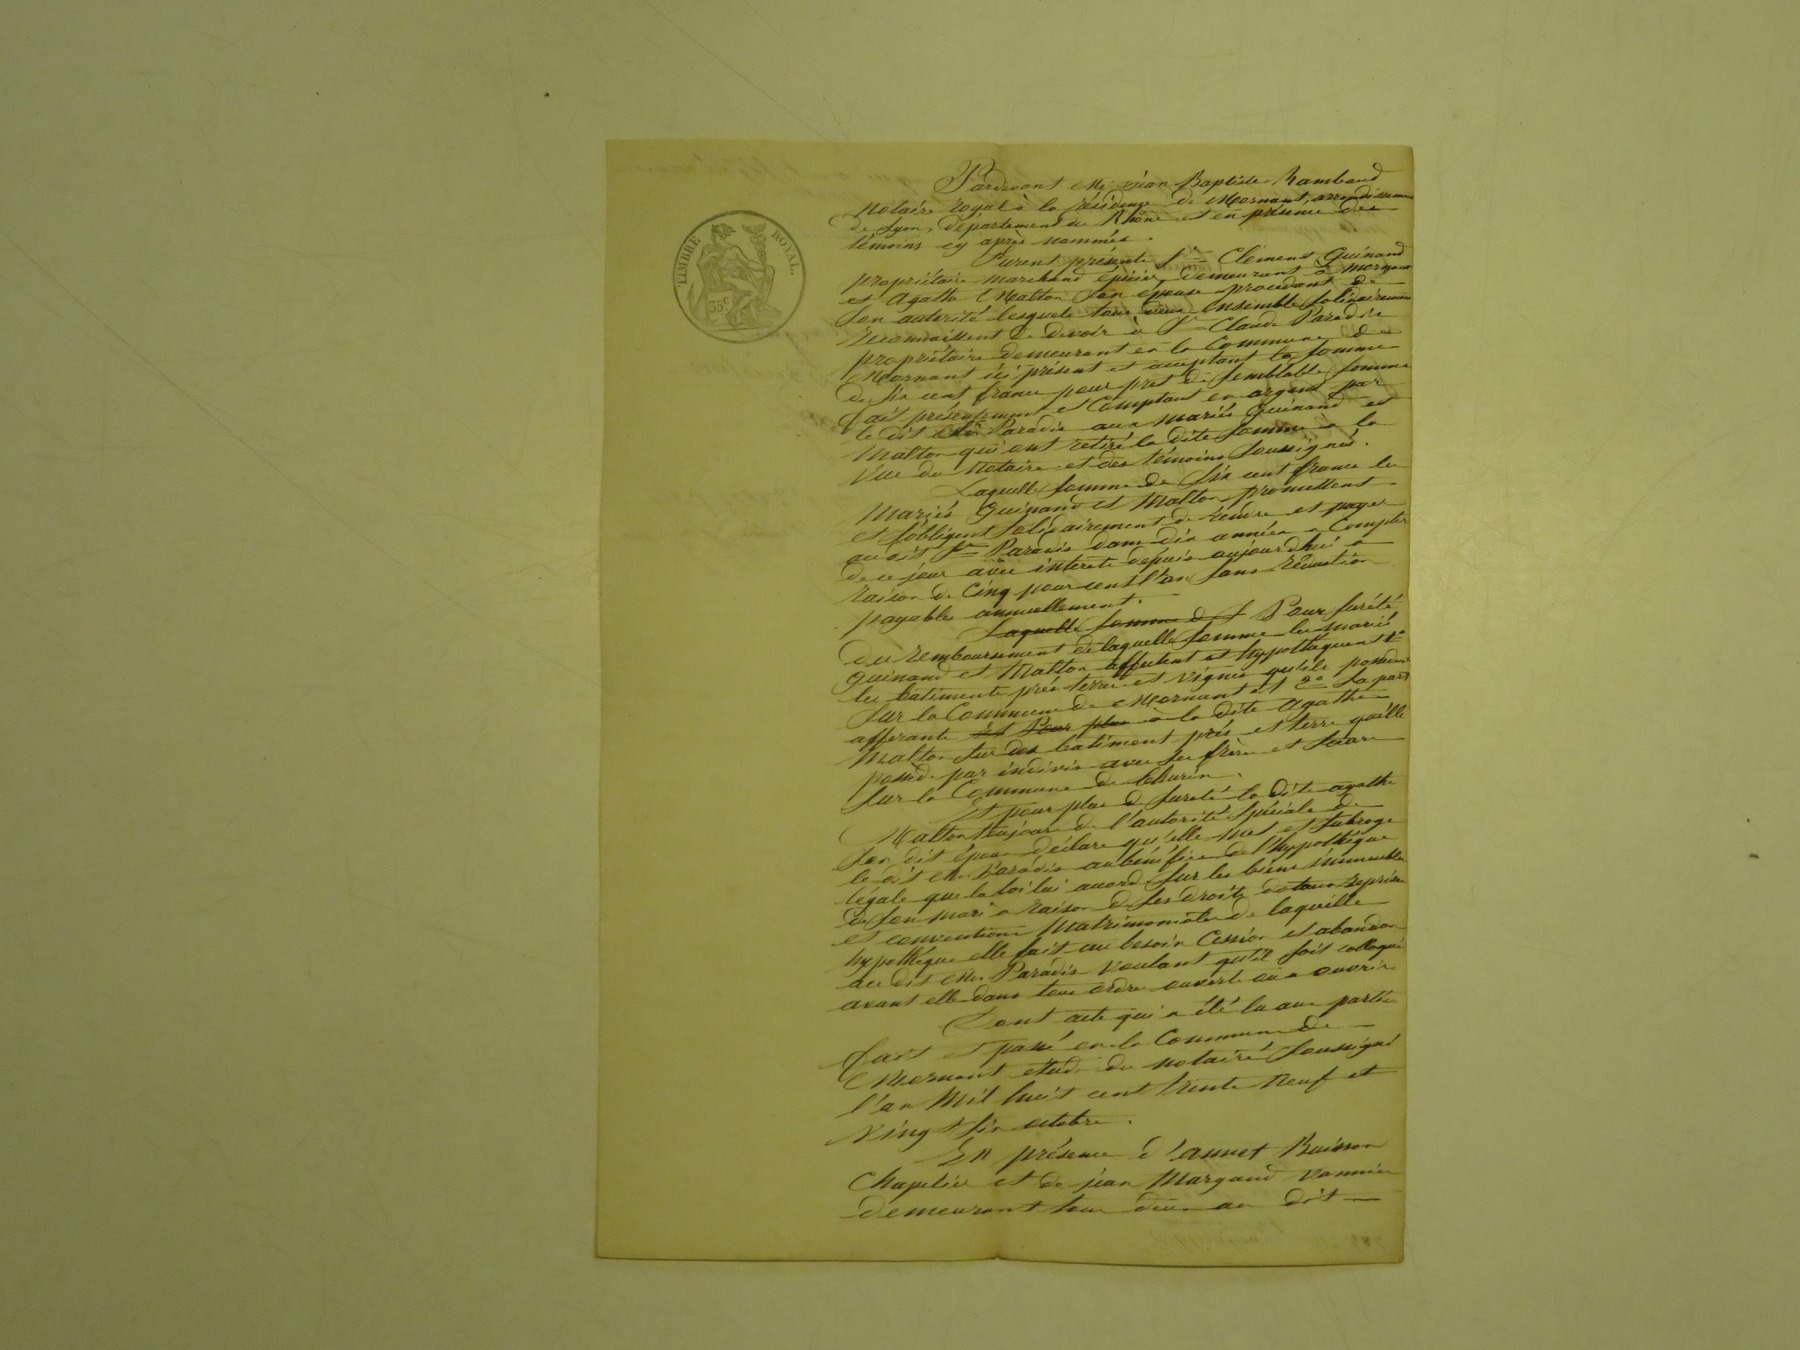 TIMBRE ROYAL.
35c
Pardevant Me jean Baptiste Rambaud
notaire royal à la résidence de Mornant, arrondissement
de Lyon, département du Rhône et en présence des
témoins cy après nommés.
Furent présents Sr Clément Guinand
propriétaire marchand épicier, demeurant à mornant
et agathe Matton son épouse procedant de
son autorité lesquels tous deux ensemble solidairement
reconnaissent devoir à Sr Claude Paradis
propriétaire demeurant en la Commune de
Mornant ici présent et acceptant la somme
de six cent francs pour pret de semblable somme
fait présentement et Comptant en argent par
le dit Paradis aux mariés Guinand et
Matton qui ont retiré la dite somme a la
vue du Notaire et des témoins soussignés.
Laquelle somme de six cent francs les
mariés Guinand et Matton promettent
et s'obligent solidairement de rendre et payer
au dit Sr Paradis dans dix années a Compter
de ce jour avec interets depuis aujourdhui a
raison de Cinq pour cent l'an sans rétention
payable annuellement.
Laquelle somme d S Pour sureté
du remboursement de laquelle somme les mariés
Guinand et Matton affectent et hypothèquent 1o
les batiments prés terres et vignes qu'ils possedent
sur la Commune de Mornant et 2o La part
afferante Et Pour plus à la dite agathe
Matton sur des batiment prés et terre qu'elle
possède par indivis avec ses frère et soeurs
sur la Commune de Thurin.
Et pour plus de sureté la dite agathe
Matton toujours de l'autorité spéciale de
son dit époux déclare qu'elle met et subroge
le dit Me Paradis au bénéfice de l'hypothéque
légale que la loi lui accord sur les biens immeubles
de son mari a raison de ses droits dotaux reprises
et conventions matrimoniales de laquelle
hypothéque elle fait au besoin Cession et abandon
au dit Me Paradis voulant qu'il soit colloqué
avant elle dans tous ordres ouverts ou a ouvrir
Dont acte qui a été lu aux parties
fait et passé en la Commune de
Mornant étude du notaire soussigné
l'an Mil huit cent trente neuf et
vingt six octobre.
En présence d'annet Buisson
Chapelier et de jean Margaud vannier
demeurant tous deux au dit